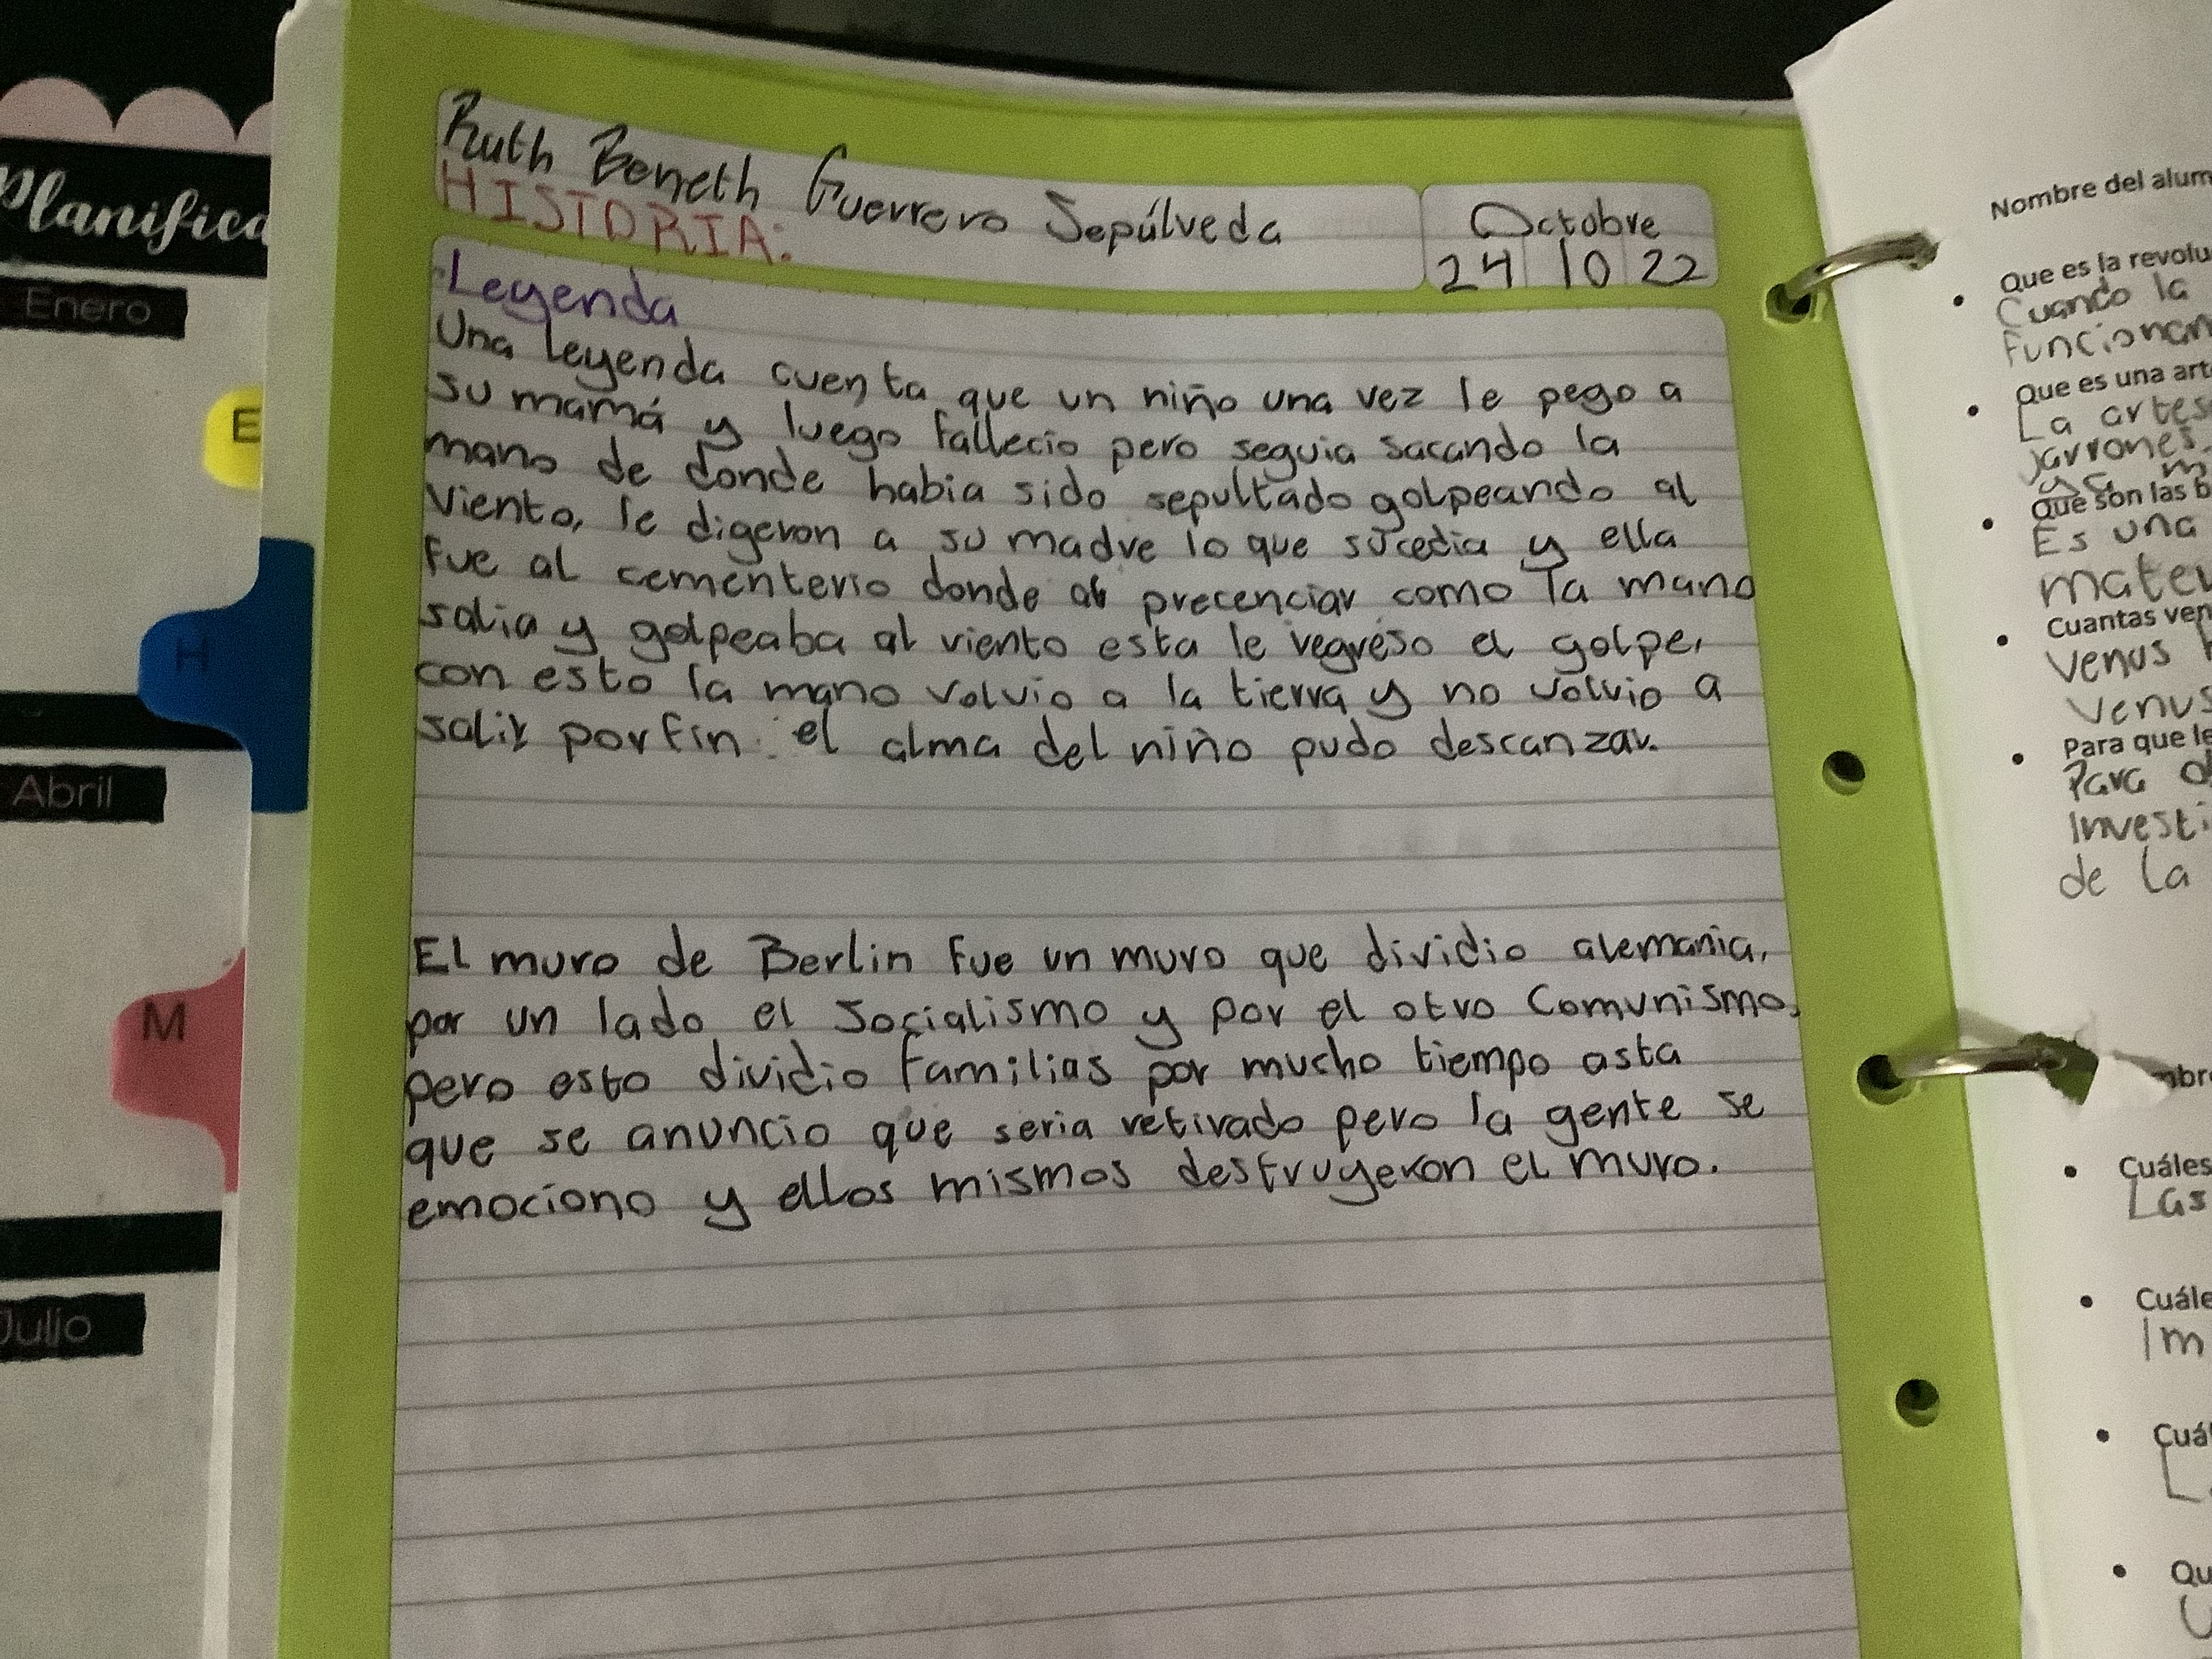 Planifica
Enero
E
H
Abril
M
Julio
Ruth Beneth Guerrero Sepúlveda
HISTORIA:
Octobre
24 10 22
Leyenda
Una leyenda cuenta que un niño una vez le pego a
su mamá y luego fallecio pero seguia sacando la
mano de donde habia sido sepultado golpeando al
viento, le digeron a su madre lo que sucedia y ella
fue al cementerio donde al precenciar como la mano
salia y golpeaba al viento esta le regreso el golpe,
con esto la mano volvio a la tierra y no volvio a
salir porfin el alma del niño pudo descanzar.
El muro de Berlin fue un muro que dividio alemania,
por un lado el Socialismo y por el otro Comunismo,
pero esto dividio familias por mucho tiempo asta
que se anuncio que seria retirado pero la gente se
emociono y ellos mismos destruyeron el muro.
Nombre del alum
• Que es la revolu
Cuando la
funcionan
• Que es una art
La artes
jarrones
• Que son las b
Es una
mater
• Cuantas ven
Venus
Venus
• Para que le
Para
Investi
de la
mbre
• Cuáles
Las
• Cuále
Im
• Cuál
• Qu